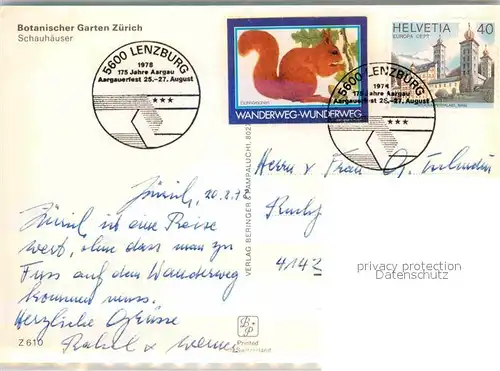 Botanischer Garten Zürich
Schauhäuser
5600 LENZBURG
1978
175 Jahre Aargau
Aargauerfest 25.–27. August
***
Eichhörnchen
WANDERWEG-WUNDERWEG
HELVETIA 40
EUROPA CEPT
5600 LENZBURG
175 Jahre Aargau
Aargauerfest 25.–27. August
***
Zürich, 20.8.7
Zürich ist eine Reise
wert, ohne dass man zu
Fuss auf dem Wanderweg
kommen muss.
Herzliche Grüsse
Rahel & Werner
Z 610
VERLAG BERINGER & PAMPALUCHI, 802
Printed
in Switzerland
Herrn u. Frau
4142
privacy protection
Datenschutz